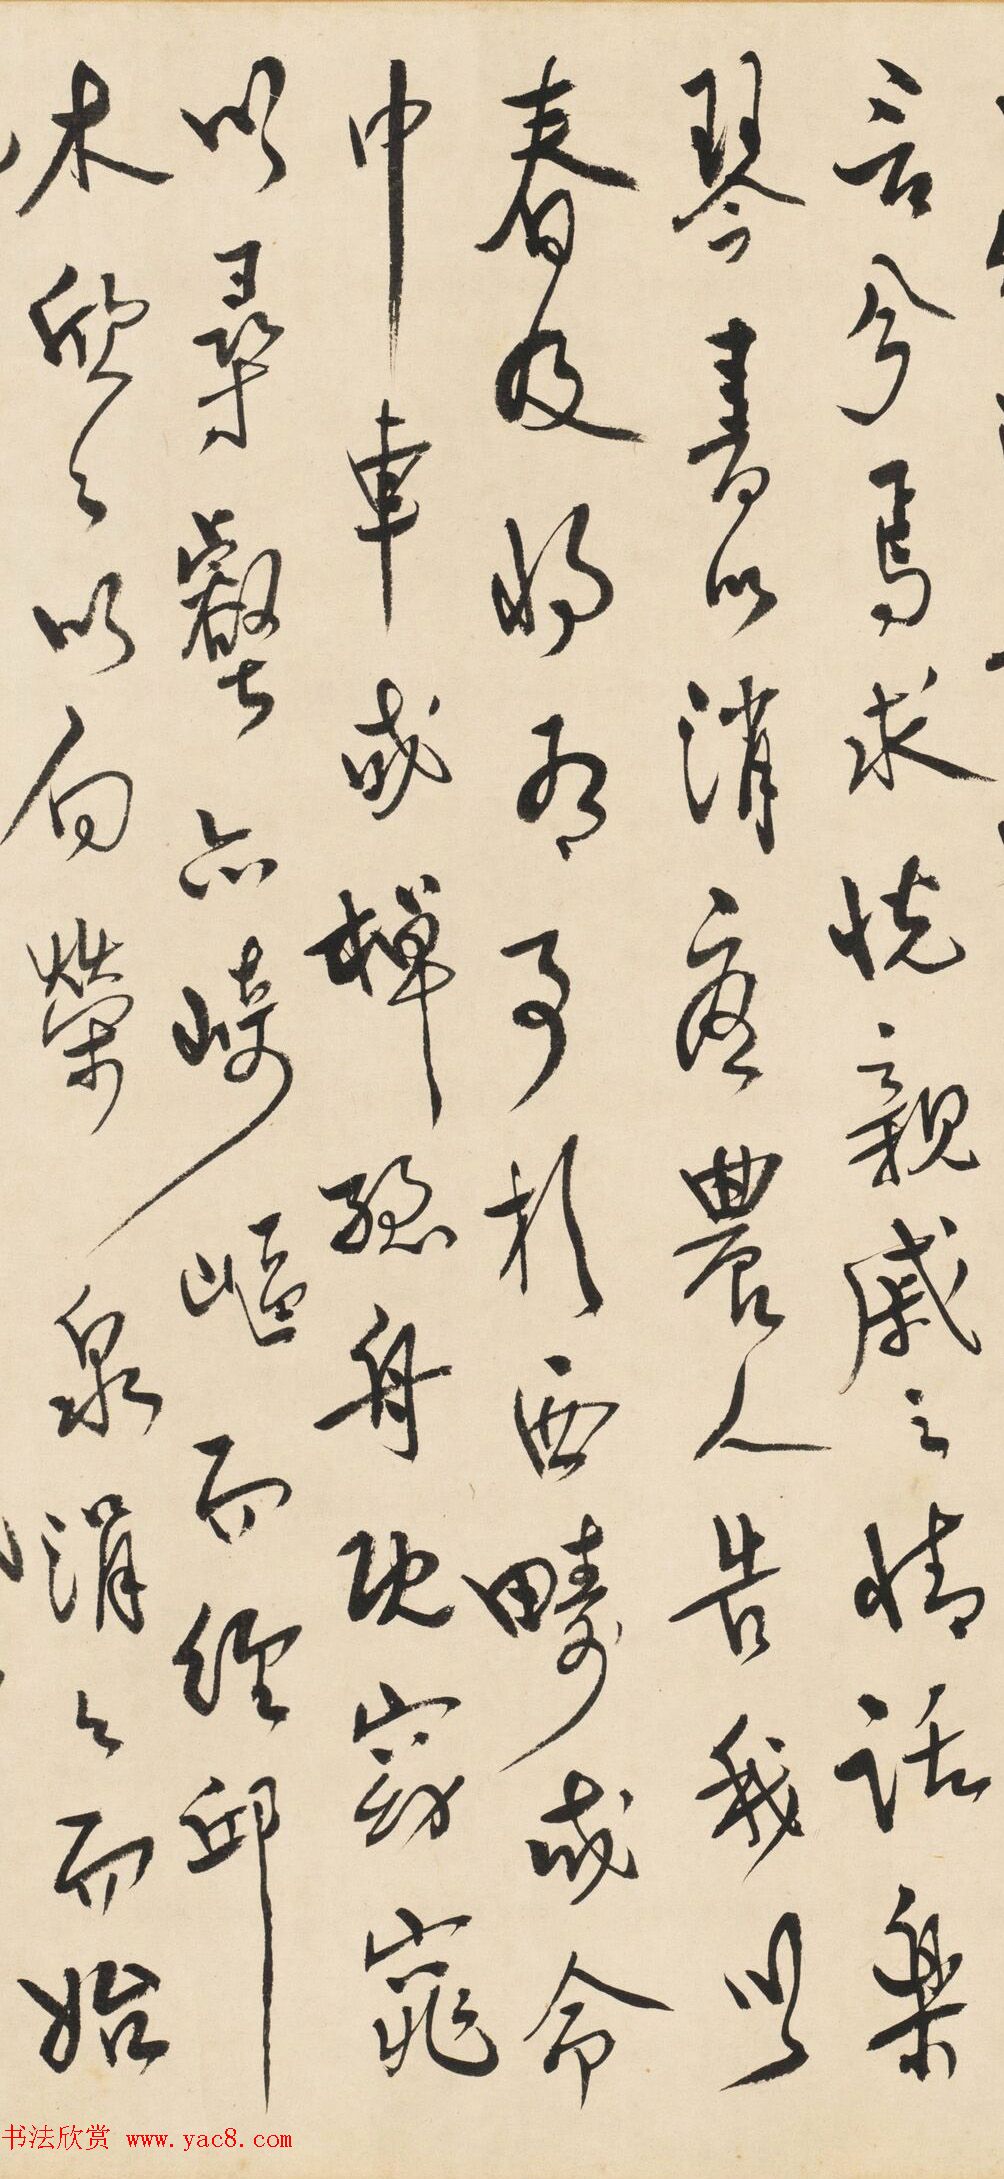 言兮焉求悦親戚之情話樂
琴書以消憂農人告我以
春及將有事於西疇或命
巾車或棹孤舟既窈窕
以尋壑亦崎嶇而經邱
木欣々以向榮泉涓々而始
书法欣赏 www.yac8.com